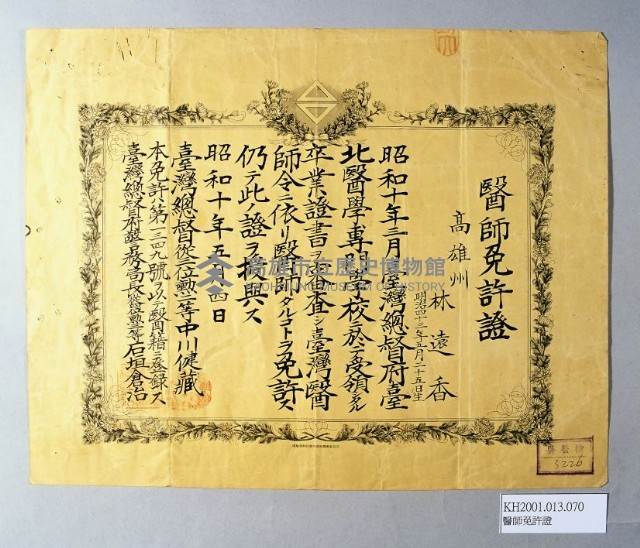 醫師免許證
高雄州
林遠香
明治四十三年五月二十五日生
昭和十年三月臺灣總督府臺
北醫學專門學校ニ於テ受領シタル
卒業證書ヲ審査シ臺灣醫
師令ニ依リ醫師タルコトヲ免許ス
仍テ此ノ證ヲ授與ス
昭和十年五月四日
臺灣總督從三位勳一等中川健藏
本免許ハ第一三四九號ヲ以テ醫籍ニ登録ス
臺灣總督府警務局長 石垣倉治
高雄市立歷史博物館
KAOHSIUNG MUSEUM OF HISTORY
5226
KH2001.013.070
醫師免許證